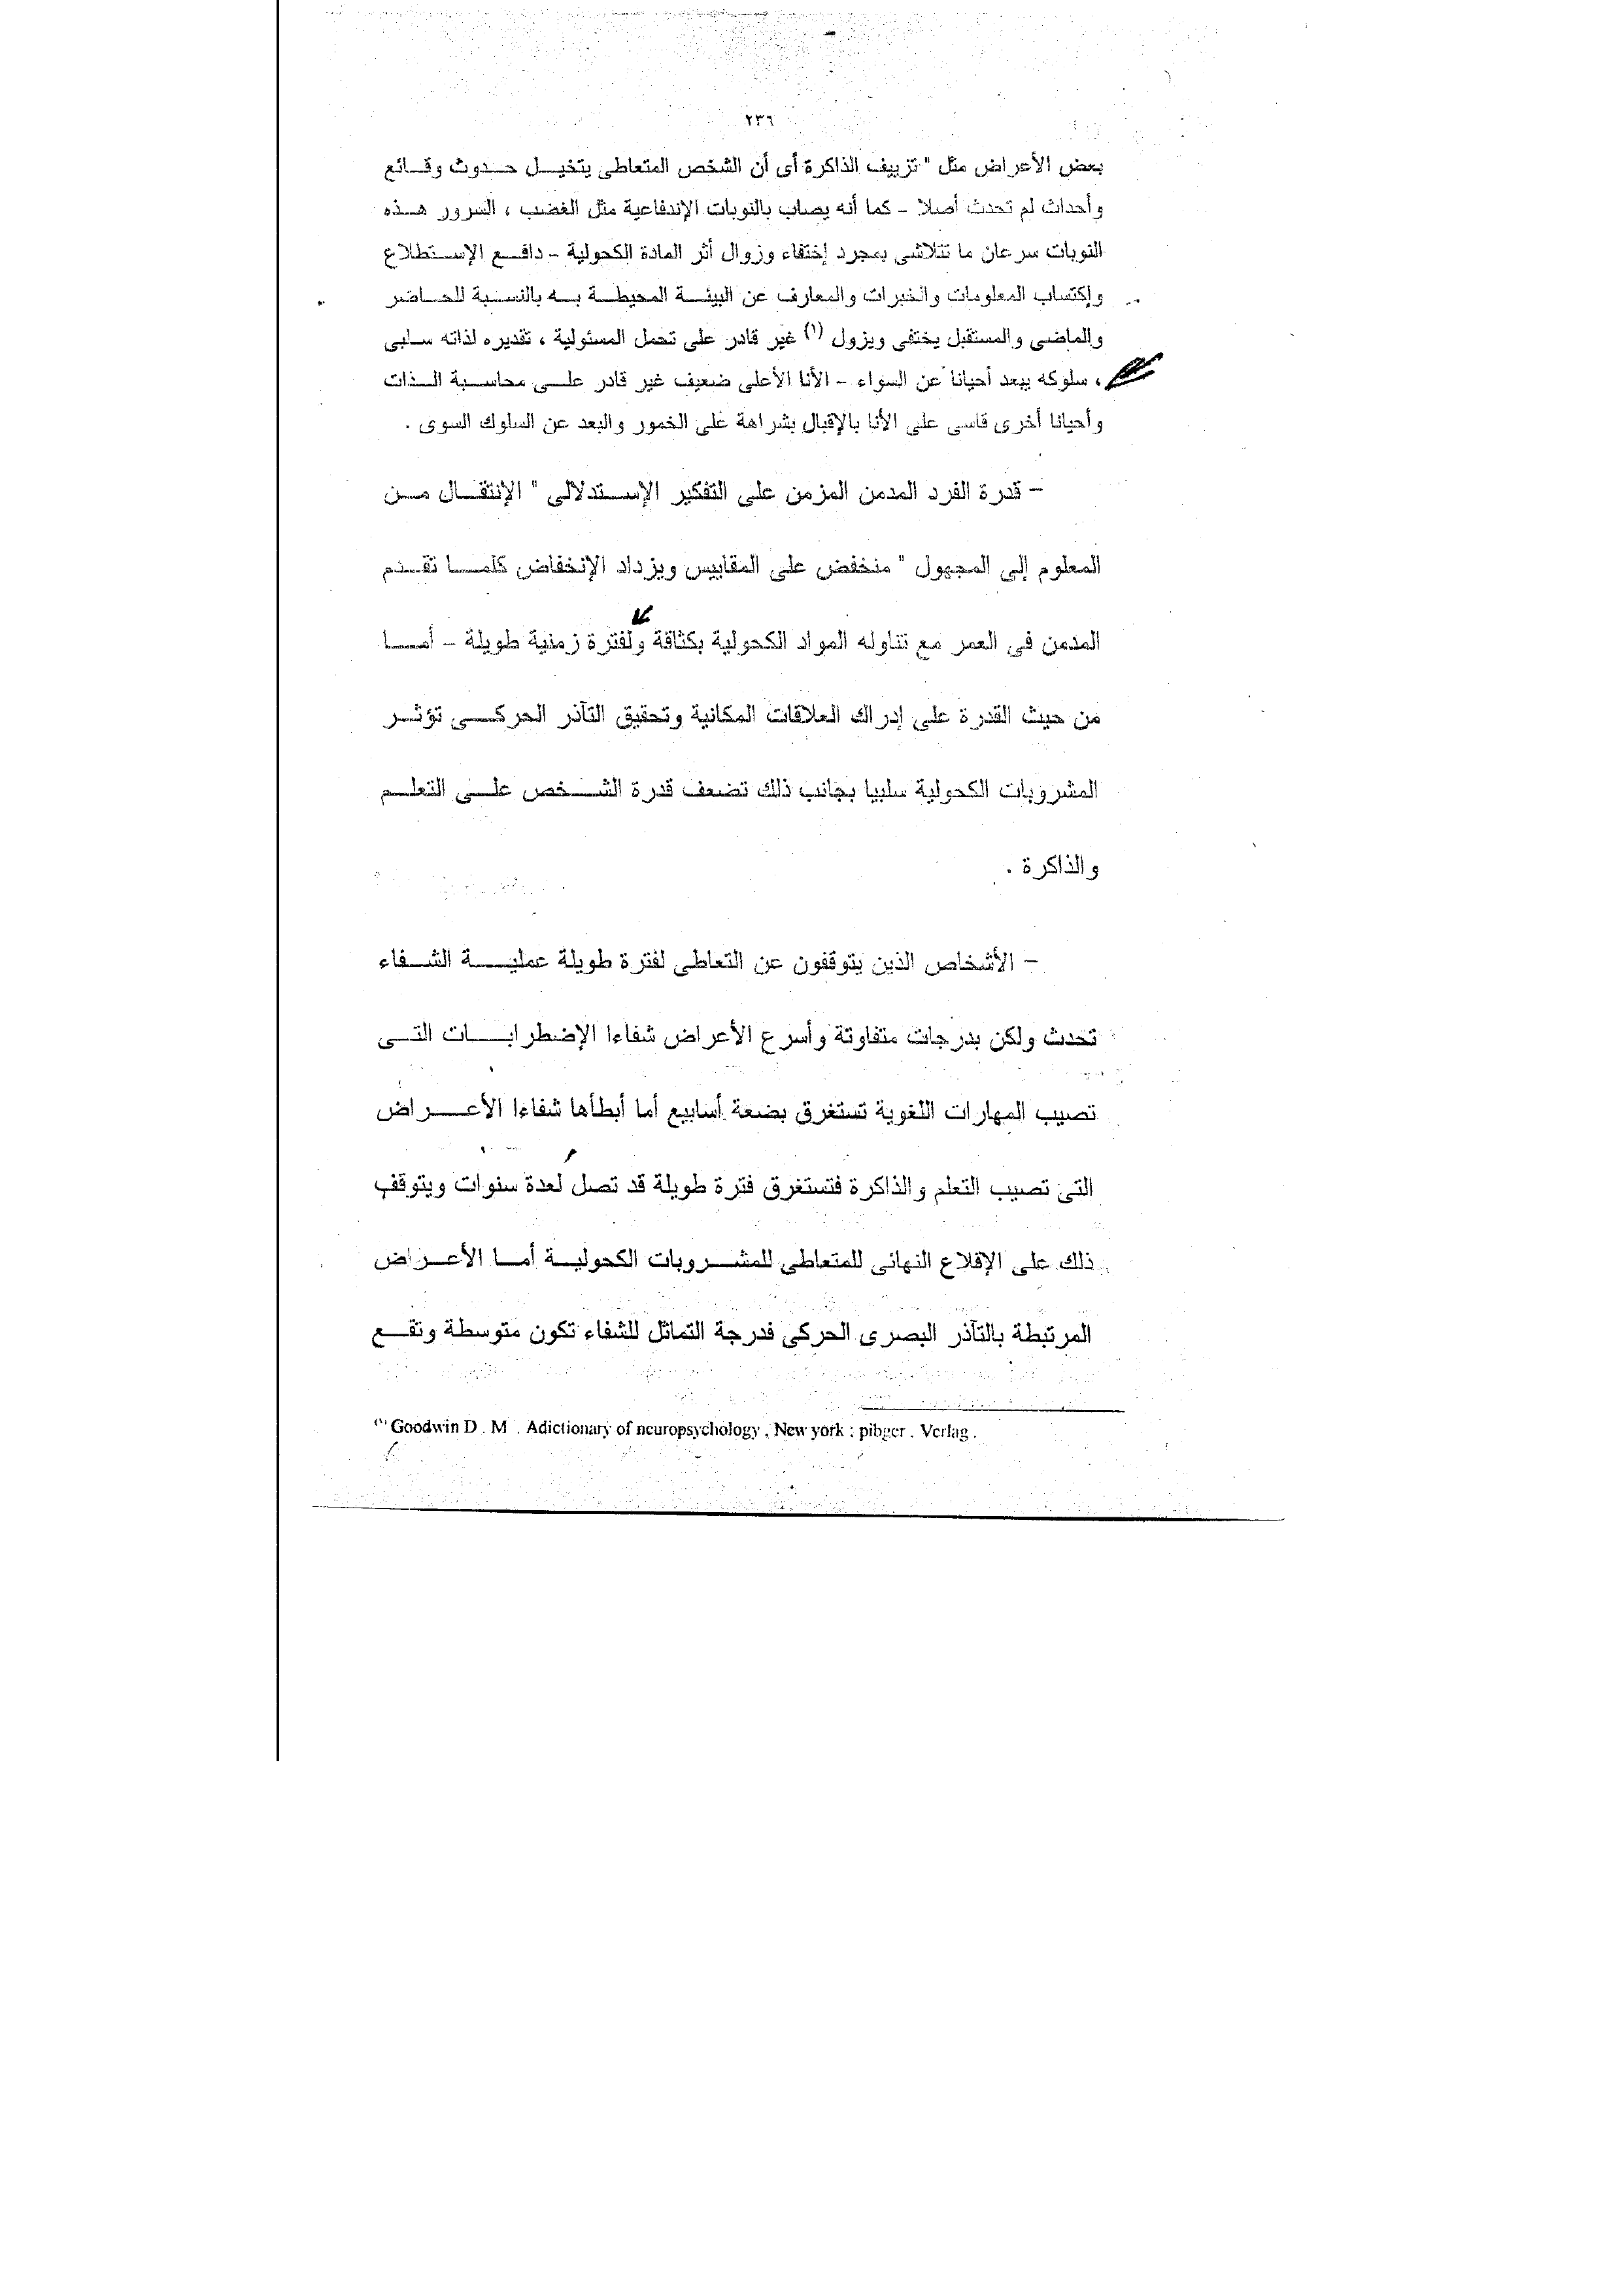 ٢٣٦
بعض الأعراض مثل " تزييف الذاكرة أى أن الشخص المتعاطى يتخيل حدوث وقائع
وأحداث لم تحدث أصلا - كما أنه يصاب بالنوبات الإندفاعية مثل الغضب ، السرور هذه
النوبات سرعان ما تتلاشى بمجرد إختفاء وزوال أثر المادة الكحولية - دافع الإستطلاع
وإكتساب المعلومات والخبرات والمعارف عن البيئة المحيطة به بالنسبة للحاضر
والماضى والمستقبل يختفى ويزول (١) غير قادر على تحمل المسئولية ، تقديره لذاته سلبى
، سلوكه يبعد أحيانا عن السواء - الأنا الأعلى ضعيف غير قادر على محاسبة الذات
وأحيانا أخرى قاسى على الأنا بالإقبال بشراهة على الخمور والبعد عن السلوك السوى .
- قدرة الفرد المدمن المزمن على التفكير الإستدلالى " الإنتقال من
المعلوم إلى المجهول " منخفض على المقاييس ويزداد الإنخفاض كلما تقدم
المدمن فى العمر مع تناوله المواد الكحولية بكثافة ولفترة زمنية طويلة - أما
من حيث القدرة على إدراك العلاقات المكانية وتحقيق التآذر الحركى تؤثر
المشروبات الكحولية سلبيا بجانب ذلك تضعف قدرة الشخص على التعلم
والذاكرة .
- الأشخاص الذين يتوقفون عن التعاطى لفترة طويلة عملية الشفاء
تحدث ولكن بدرجات متفاوتة وأسرع الأعراض شفاءا الإضطرابات التى
تصيب المهارات اللغوية تستغرق بضعة أسابيع أما أبطأها شفاءا الأعراض
التى تصيب التعلم والذاكرة فتستغرق فترة طويلة قد تصل لعدة سنوات ويتوقف
ذلك على الإقلاع النهائى للمتعاطى للمشروبات الكحولية أما الأعراض
المرتبطة بالتآذر البصرى الحركى فدرجة التماثل للشفاء تكون متوسطة وتقع
(١) Goodwin D . M . Adictionary of neuropsychology , New york : pibger . Verlag .